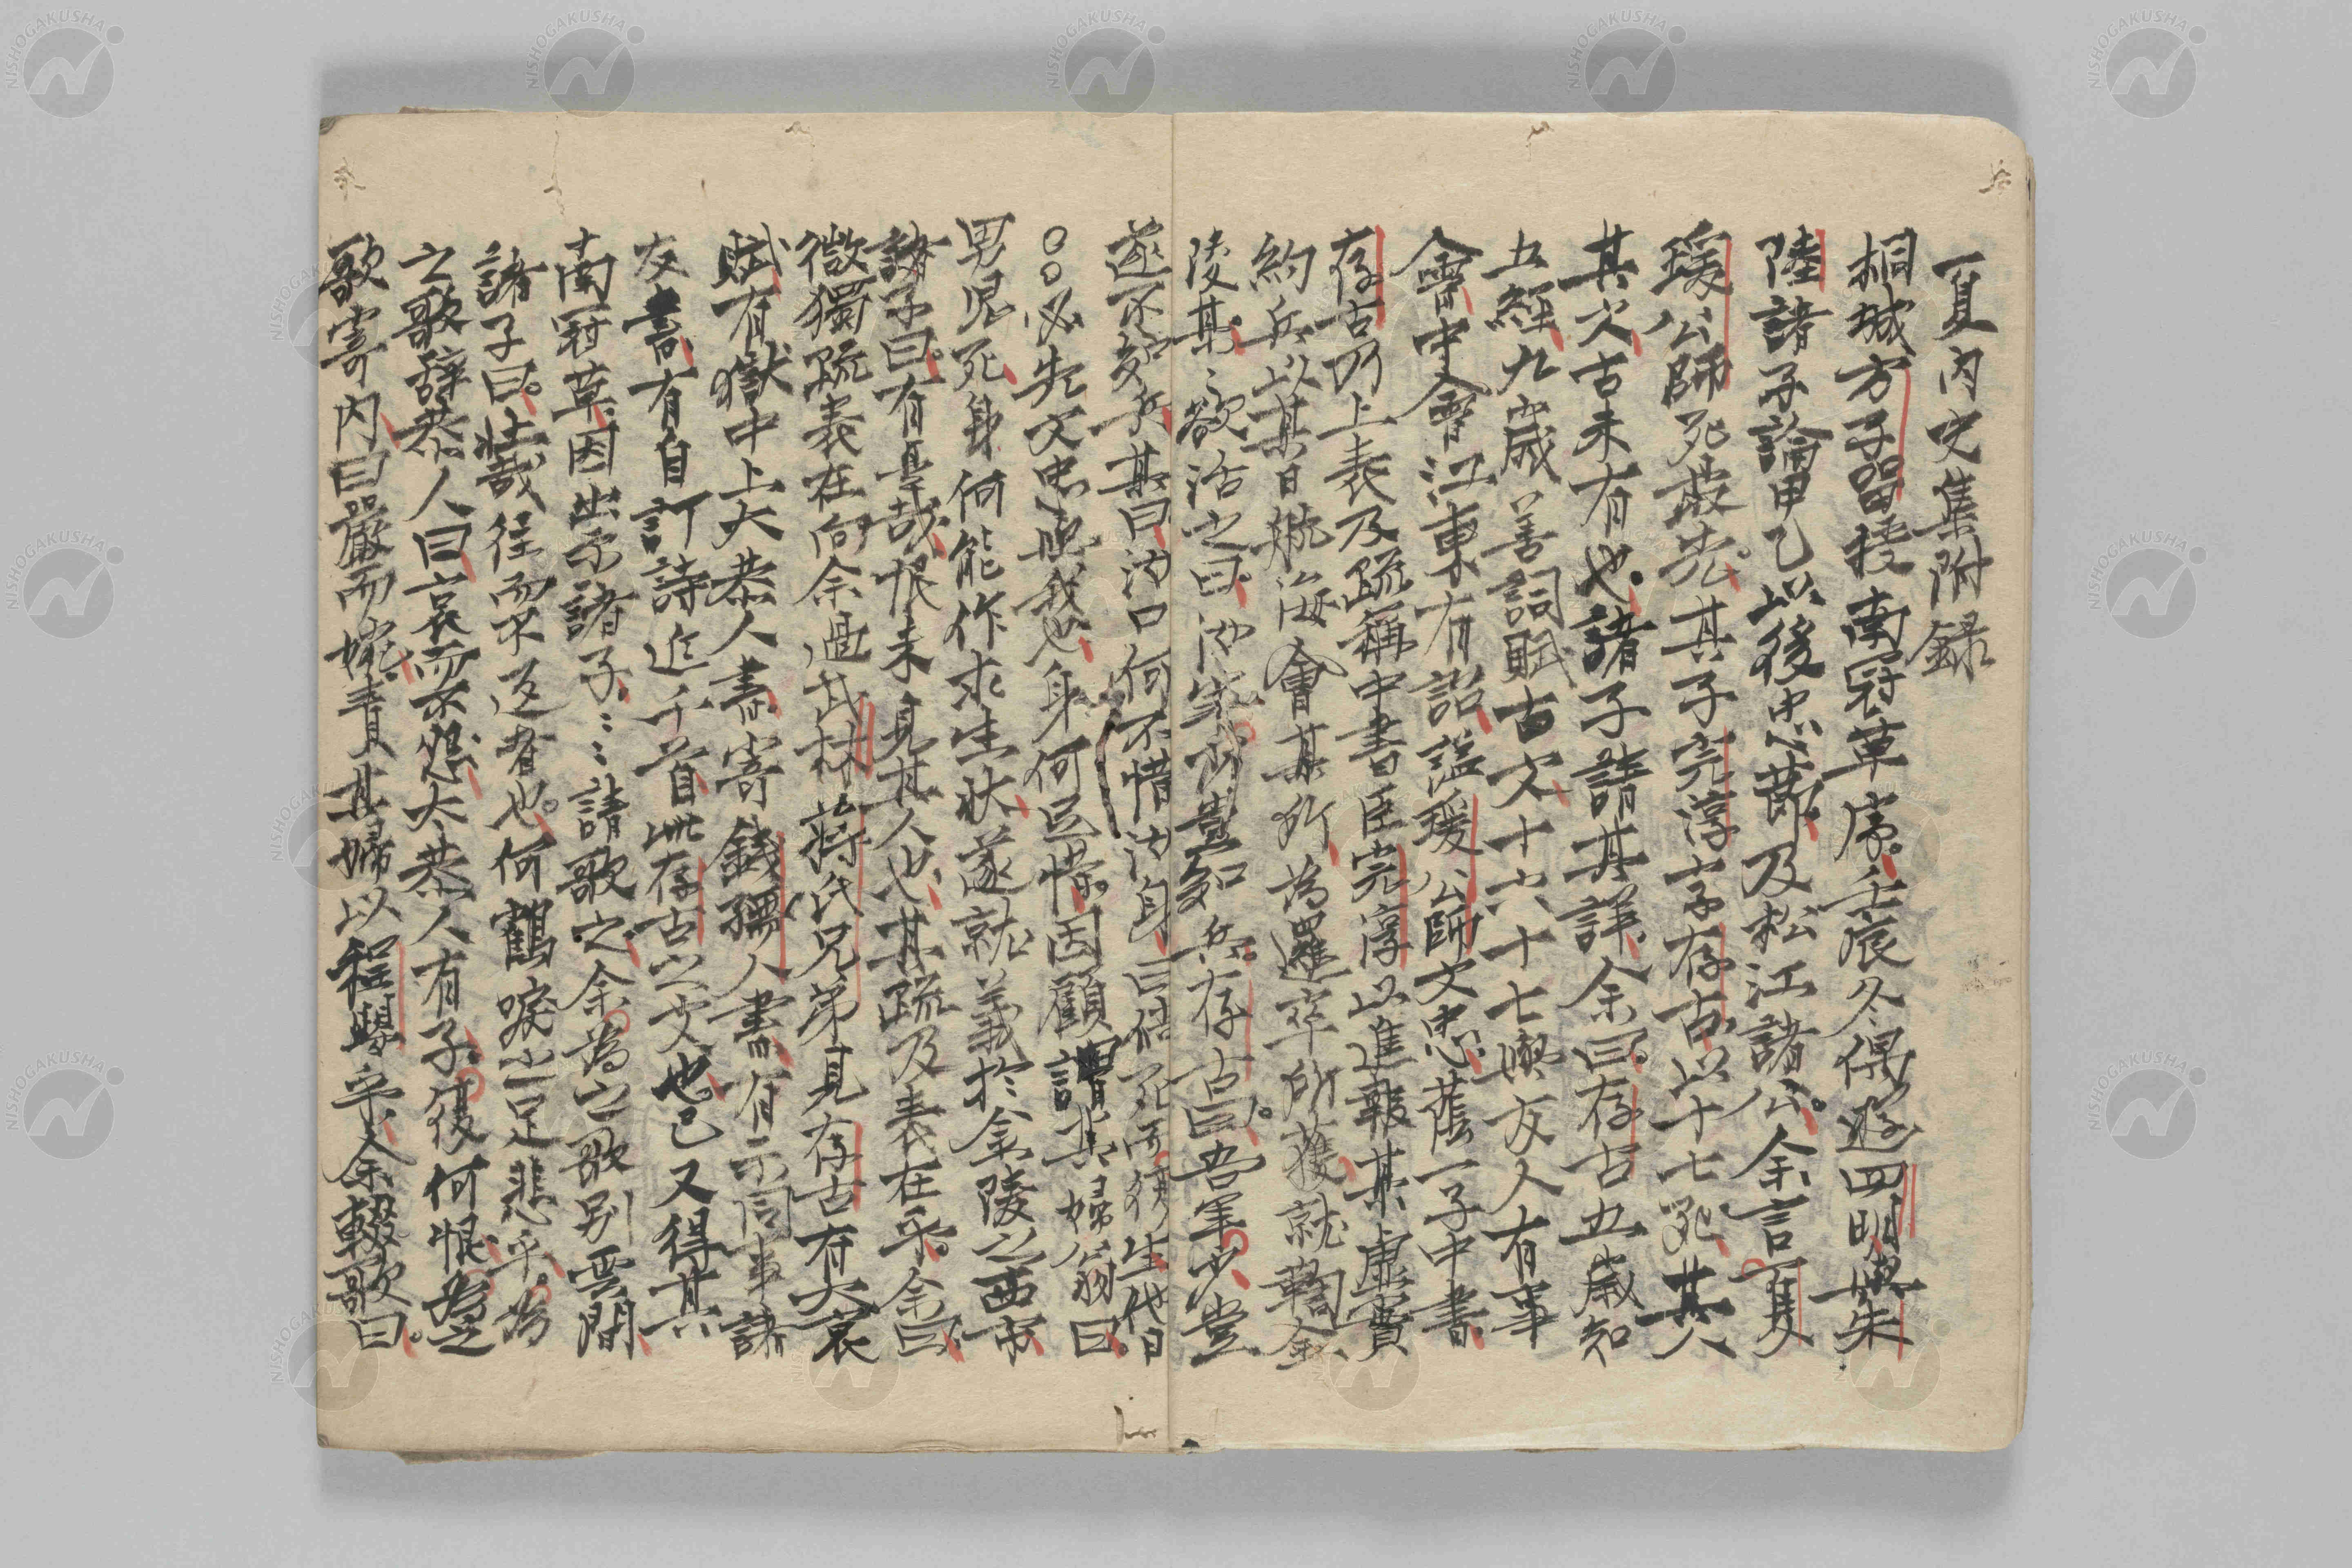 夏內史集附錄
桐城方子留授南冠草序壬辰冬偶遊四明與朱
陸諸子論甲乙以後忠節及松江諸公余言夏
瑗公師死最先其子完淳字存古以十七死其人
其文古未有也諸子請其詳余曰存古五歲知
五經九歲善詞賦古文十六十七與友人有事
會中會江東有詔諡瑗公師文忠蔭一子中書
存古乃上表及疏稱中書臣完淳以進報某虜實
約兵以某日航海會某所為邏卒所獲就鞫金
陵某〻欲活之曰汝家豈知兵存古曰吾軍少豈
遂不知兵某曰汝口何不惜汝身曰倖死而狥生他日
○○必先文忠與我也身何足惜因顧謂其婦翁曰
男兒死身何能作求生狀遂就義於金陵之西市
諸子曰有是哉恨未見其人也其疏及表在乎余曰
微獨疏表在向余過武林蔣氏兄弟見存古有大哀
賦有獄中上大恭人書寄錢孺人書有示同事諸
友書有自訂詩近千首此存古之文也已又得其
南冠草因出示諸子〻〻請歌之余為之歌別雲間
諸子曰壯哉往而不返者也何鶴唳之足悲乎為
之歌辭恭人曰哀而不怨大恭人有子復何恨為之
歌寄內曰嚴而婉責其婦以程嬰乎余輟歌曰